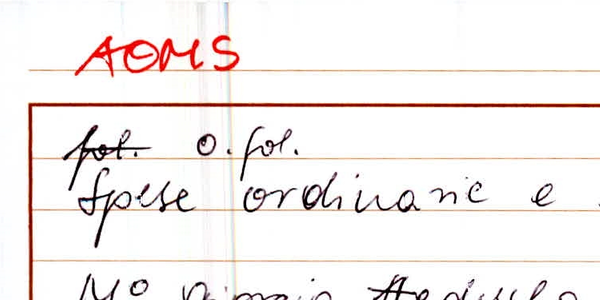 AOMS
fol. 0. fol.
Spese ordinarie e
Mº